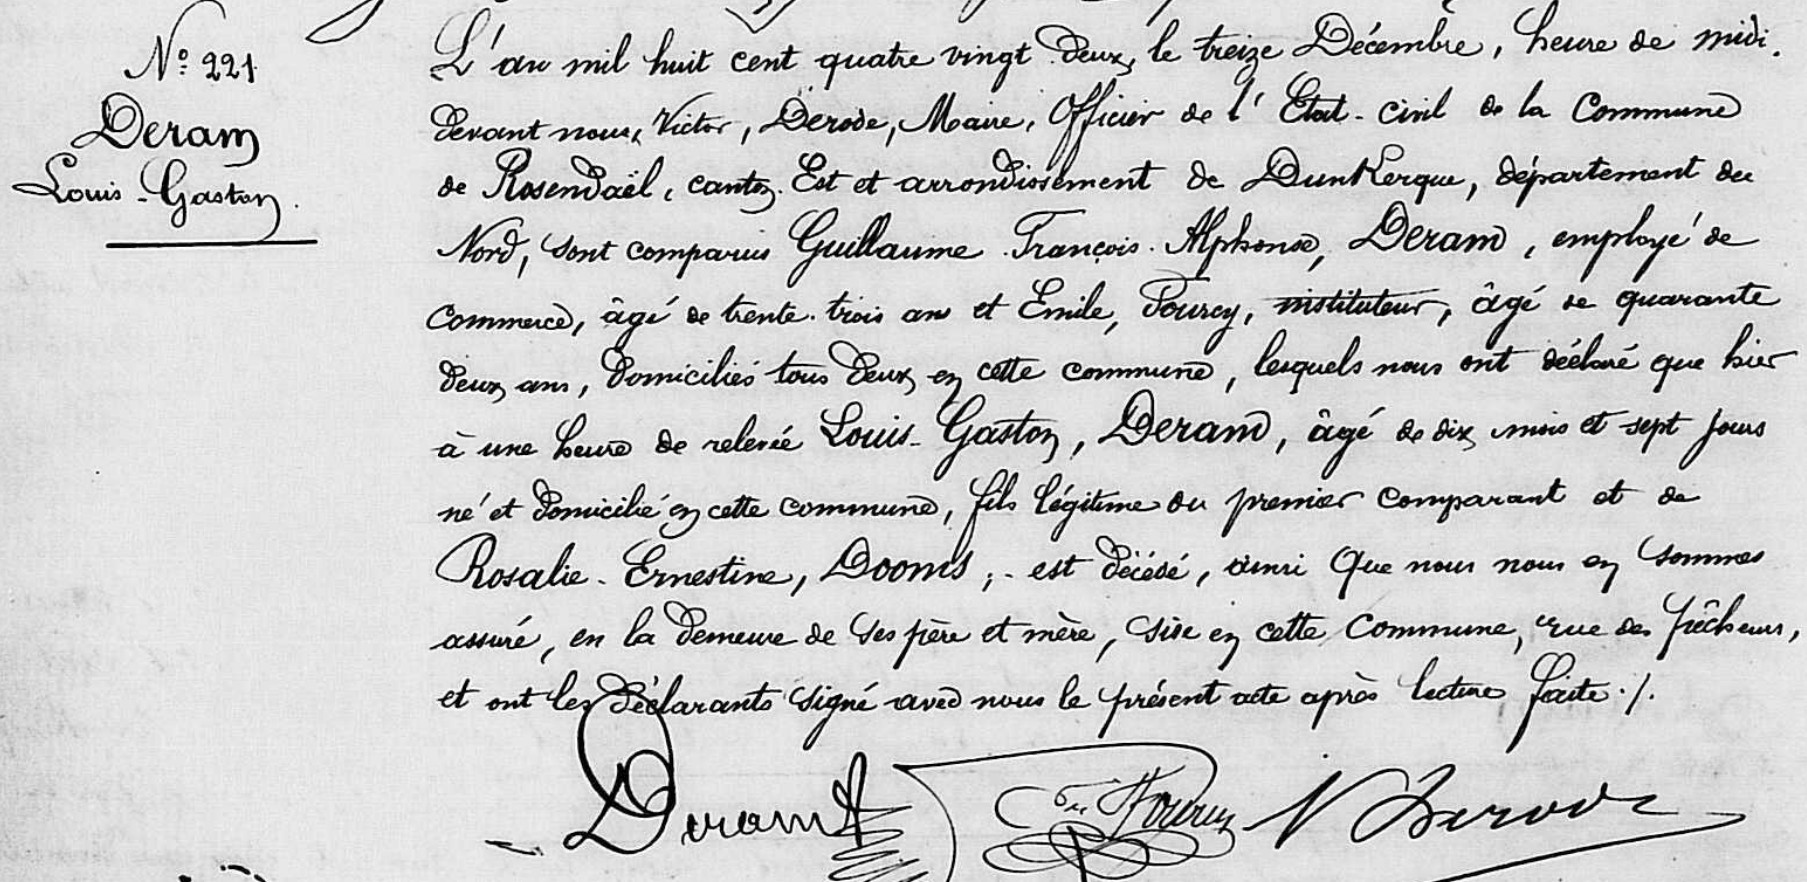 N° 221
Deram
Louis-Gaston.
L'an mil huit cent quatre vingt deux, le treize Décembre, heure de midi.
devant nous, Victor, Derode, Maire, Officier de l'Etat-civil de la Commune
de Rosendaël, canton Est et arrondissement de Dunkerque, département du
Nord, sont comparus Guillaume François Alphonse, Deram, employé de
commerce, âgé de trente trois ans et Emile, Fourey, instituteur, âgé de quarante
deux ans, domiciliés tous deux en cette commune, lesquels nous ont déclaré que hier
à une heure de relevée Louis-Gaston, Deram, âgé de dix mois et sept jours
né et domicilié en cette commune, fils légitime du premier comparant et de
Rosalie-Ernestine, Dooms, est décédé, ainsi que nous nous en sommes
assuré, en la demeure de ses père et mère, sise en cette Commune, rue des pêcheurs,
et ont les déclarants signé avec nous le présent acte après lecture faite ./.
Deram A
V Derode